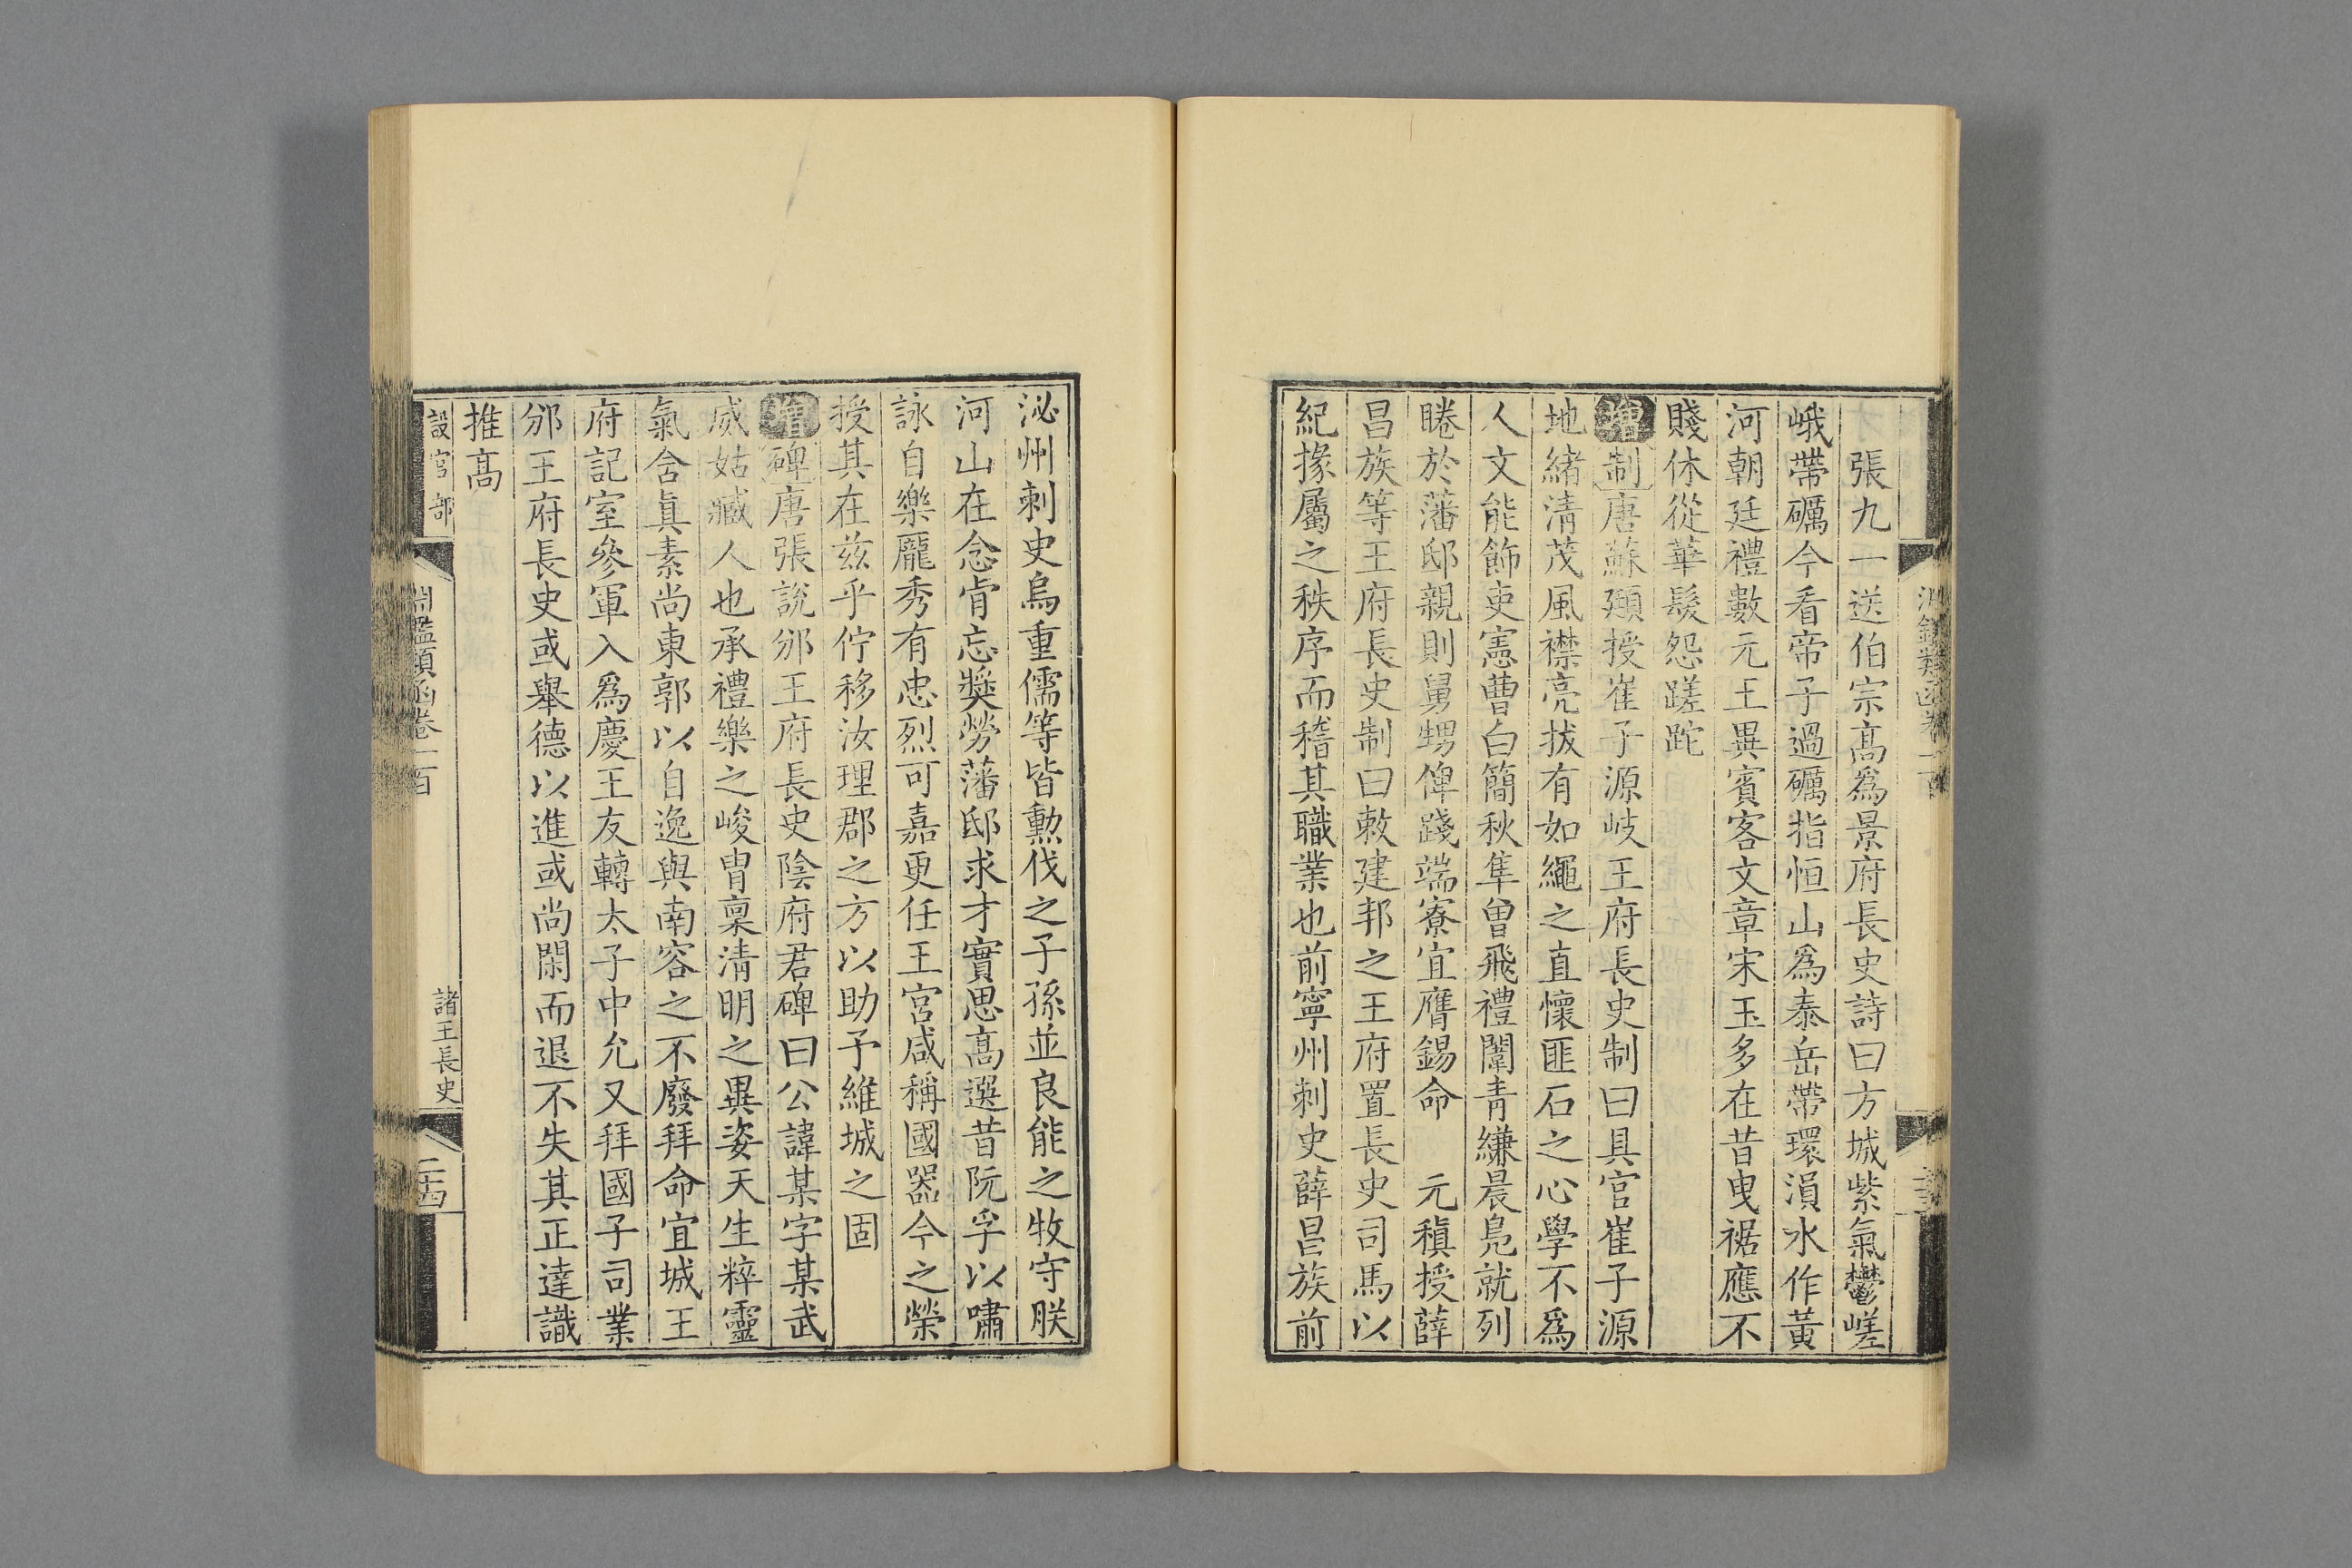 張九一送伯宗高爲景府長史詩曰方城紫氣鬱嵯
峨帶礪今看帝子過礪指恒山爲泰岳帶環湏水作黃
河朝廷禮數元王異賓客文章宋玉多在昔曳裾應不
賤休從華髮怨蹉跎
增制唐蘇頲授崔子源岐王府長史制曰具官崔子源
地緒清茂風襟亮拔有如繩之直懷匪石之心學不爲
人文能飾吏憲曹白簡秋隼曾飛禮闈青縑晨鳧就列
睠於藩邸親則舅甥俾踐端寮宜膺錫命　元稹授薛
昌族等王府長史制曰敕建邦之王府置長史司馬以
紀掾屬之秩序而稽其職業也前寧州刺史薛昌族前
泌州刺史烏重儒等皆勳伐之子孫並良能之牧守朕
河山在念肯忘奬勞藩邸求才實思高選昔阮孚以嘯
詠自樂龐秀有忠烈可嘉更任王宮咸稱國器今之榮
授其在兹乎佇移汝理郡之方以助予維城之固
增碑唐張說邠王府長史陰府君碑曰公諱某字某武
威姑臧人也承禮樂之峻胄稟清明之異姿天生粹靈
氣含眞素尚東郭以自逸與南容之不廢拜命宜城王
府記室參軍入爲慶王友轉太子中允又拜國子司業
邠王府長史或舉德以進或尚閑而退不失其正達識
推高
設官部
淵鑑類函卷一百
諸王長史
二十四